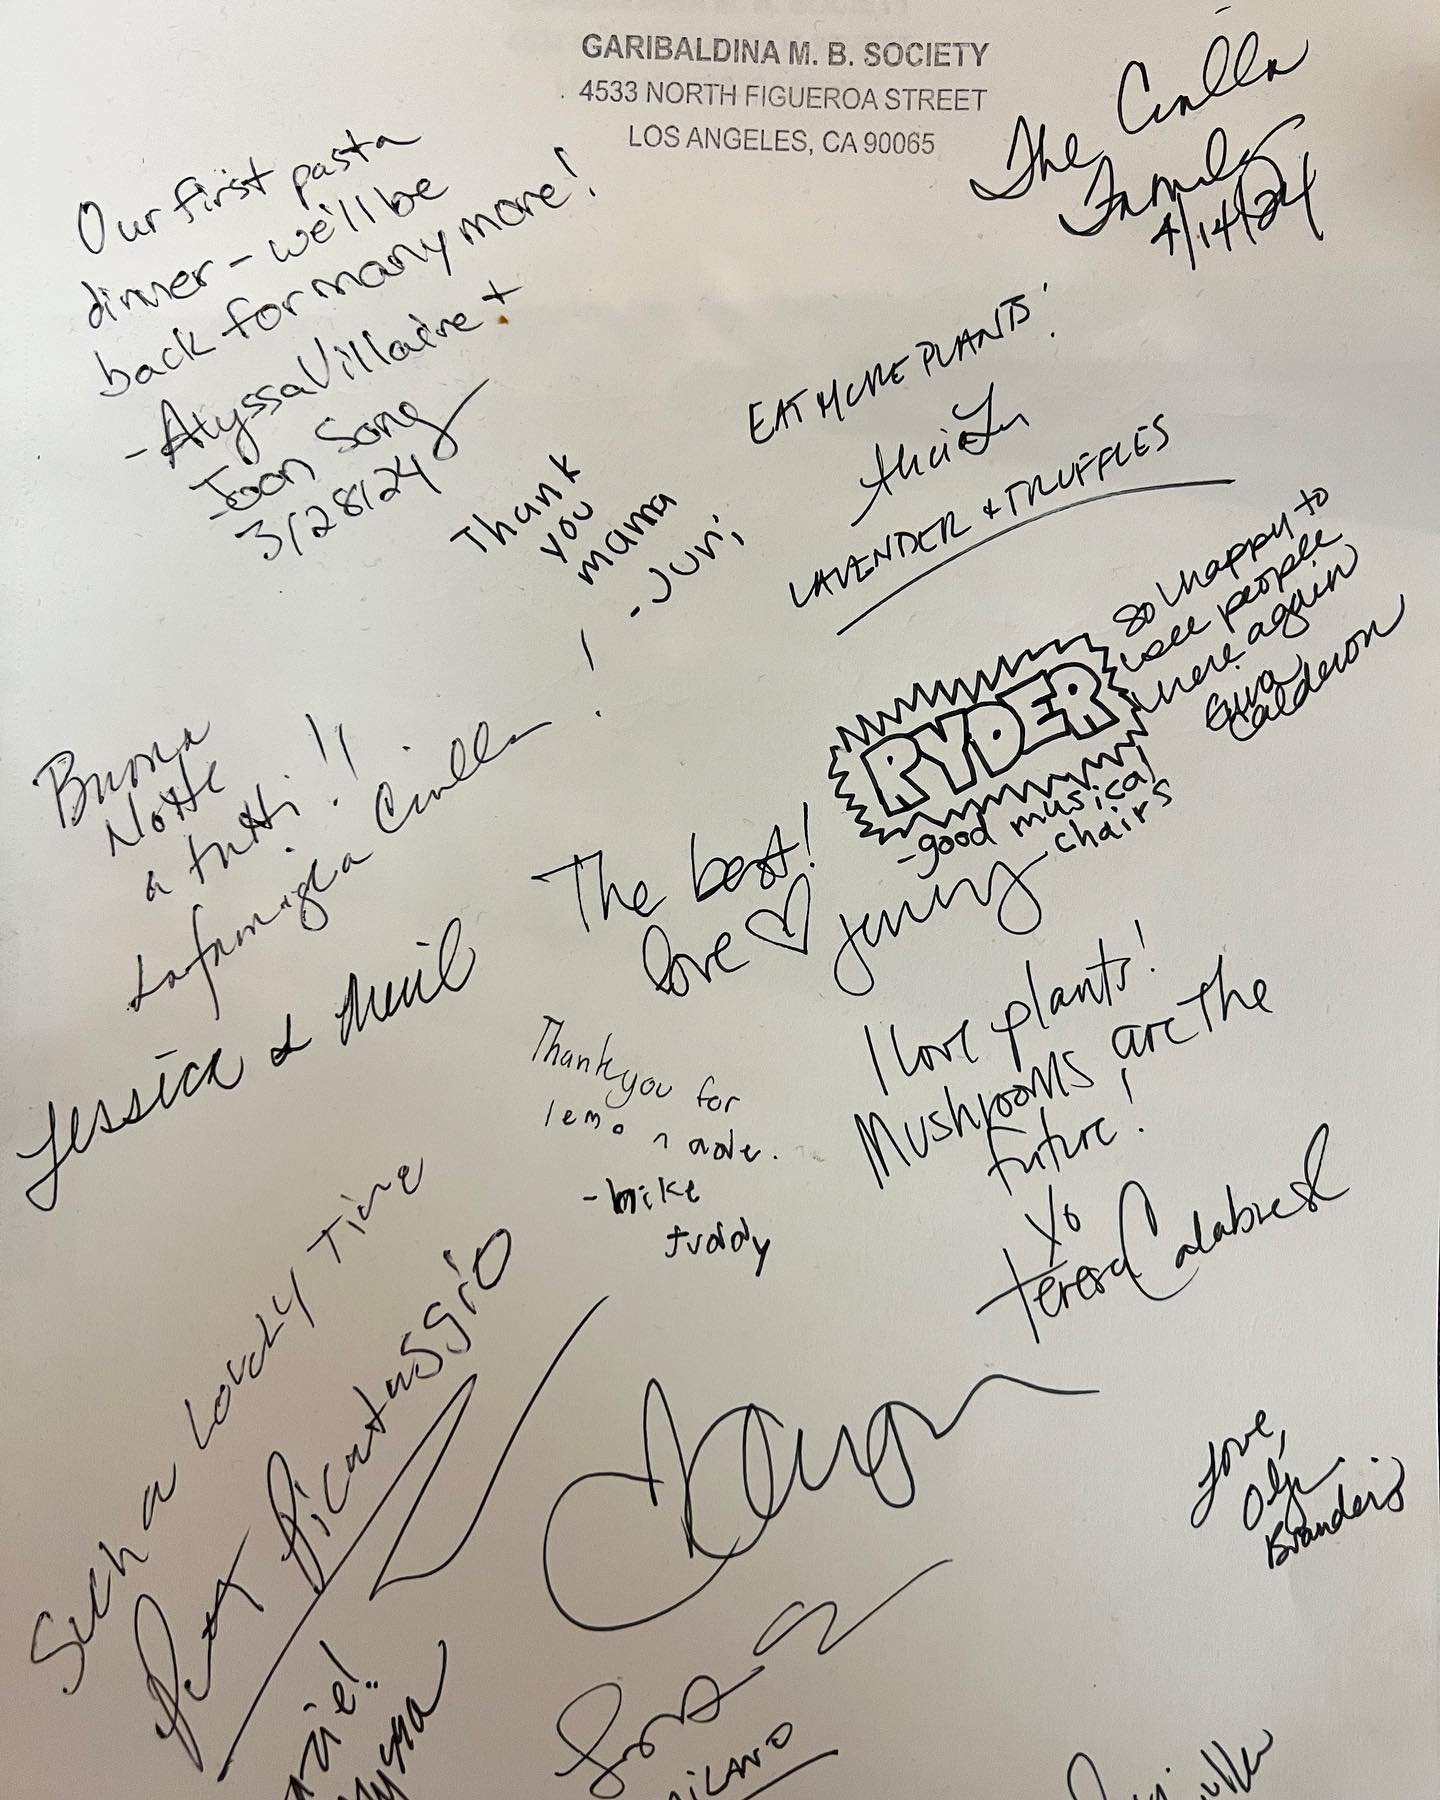 GARIBALDINA M. B. SOCIETY
4533 NORTH FIGUEROA STREET
LOS ANGELES, CA 90065
The Ciulla
Family
4/14/24
Our first pasta
dinner - we'll be
back for many more!
- Alyssa Villaire +
Joon Song
3/28/24
EAT MORE PLANTS!
Alicia
LAVENDER & TRUFFLES
Thank
you
mama
- Juri;
so happy to
see people
here again
Calderon
RYDER
- good musical
chairs
Buona
Notte
a tutti!!
La famiglia Ciulla!
The best!
love ♡ Jenny
Jessica &
I love plants!
Mushrooms are the
future!
Yo
Teresa Calabrese
Thank you for
lemonade.
- mike
fuddy
Such a Lovely Time
Pat Picatuggio
Love,
Branderis